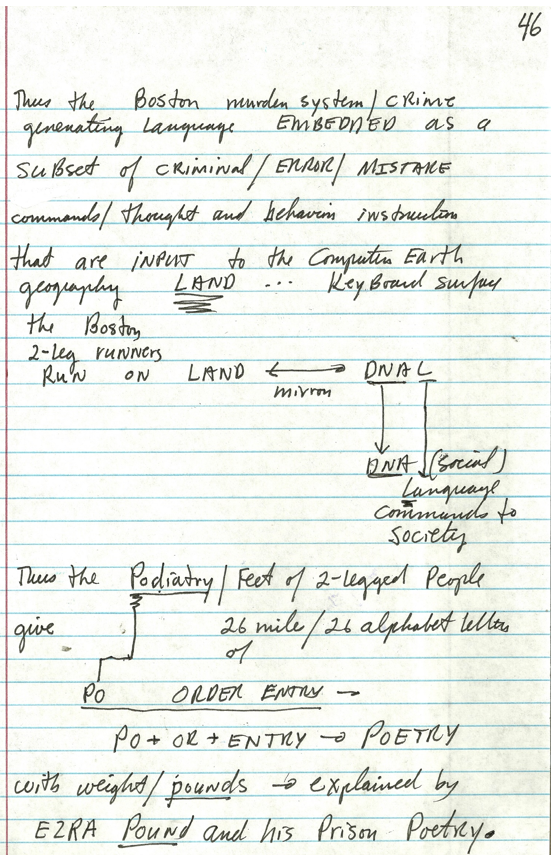 46
Thus the Boston murder system/CRIME
generating Language EMBEDDED as a
SUBset of CRIMINAL/ERROR/MISTAKE
commands/thought and behavior instruction
that are INPUT to the Computer Earth
geography LAND ... KeyBoard surface
the Boston
2-leg runners
RUN ON LAND ⟷ DNA L
mirror
DNA (Social)
Language
Commands to
Society
Thus the Podiatry/Feet of 2-legged People
give 26 mile/26 alphabet letters
of
PO ORDER ENTRY →
PO + OR + ENTRY → POETRY
with weight/pounds → explained by
EZRA Pound and his Prison Poetry.